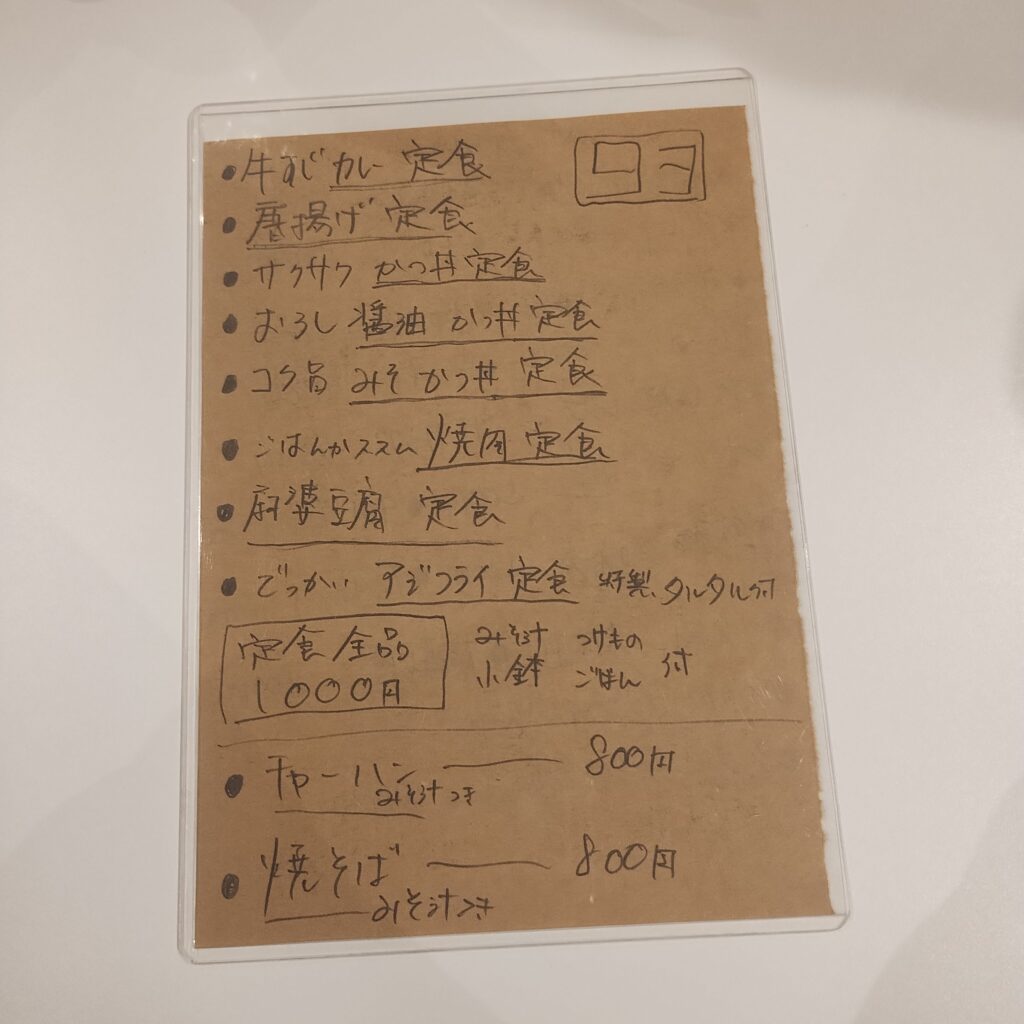 ロヨ
・牛すじカレー定食
・唐揚げ定食
・サクサク かつ丼定食
・おろし醤油 かつ丼定食
・コク旨 みそかつ丼 定食
・ごはんがススム 焼肉定食
・麻婆豆腐 定食
・でっかい アジフライ定食 特製、タルタル付
定食全品
1000円
みそ汁 つけもの
小鉢 ごはん 付
・チャーハン —— 800円
みそ汁つき
・焼そば —— 800円
みそ汁つき